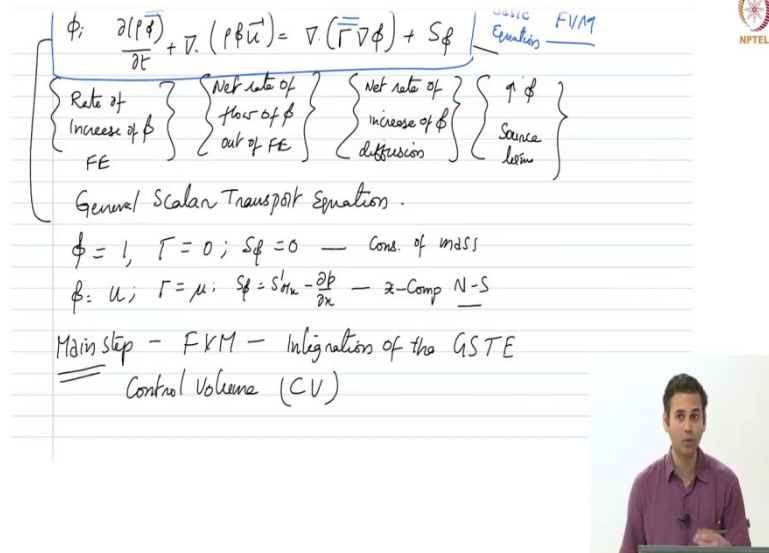 φ; ∂(ρφ)/∂t + ∇.(ρφu⃗) = ∇.(Γ∇φ) + Sφ
Basic FVM
Equation
NPTEL
{Rate of Increase of φ FE} {Net rate of flow of φ out of FE} {Net rate of increase of φ diffusion} {↑ φ Source term}
General Scalar Transport Equation.
φ = 1, Γ = 0; Sφ = 0 — Cons. of mass
φ = u; Γ = μ; Sφ = - ∂p/∂x — x-Comp N-S
Main Step - FVM - Integration of the GSTE
Control Volume (CV)